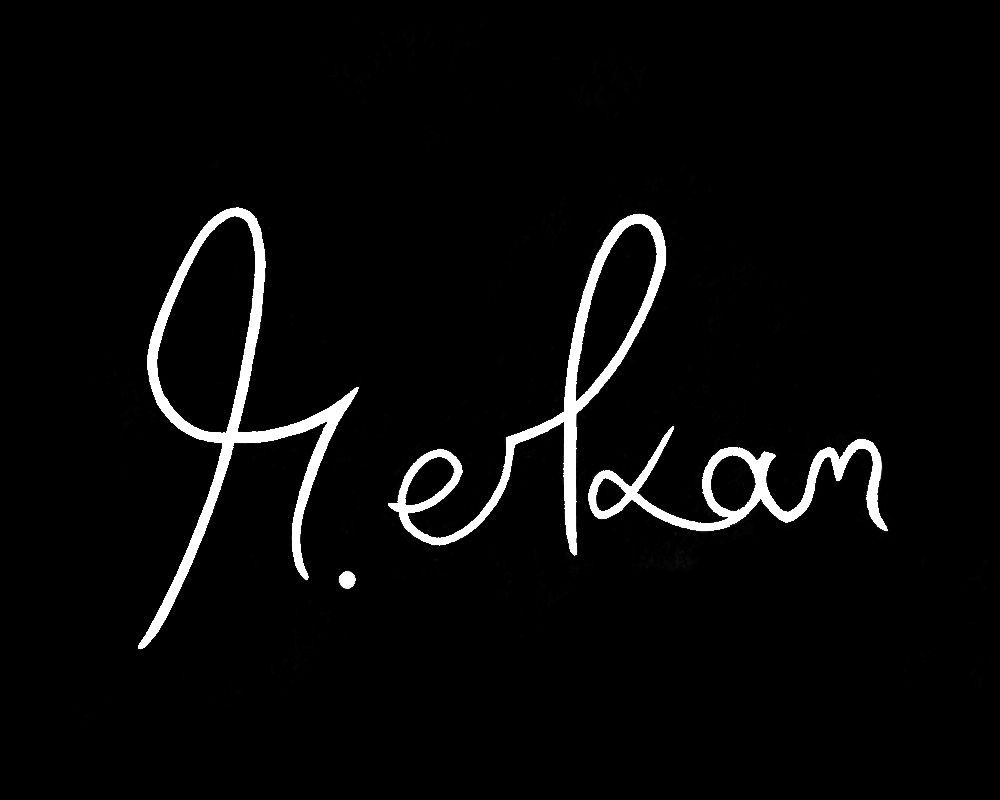 M. erkan